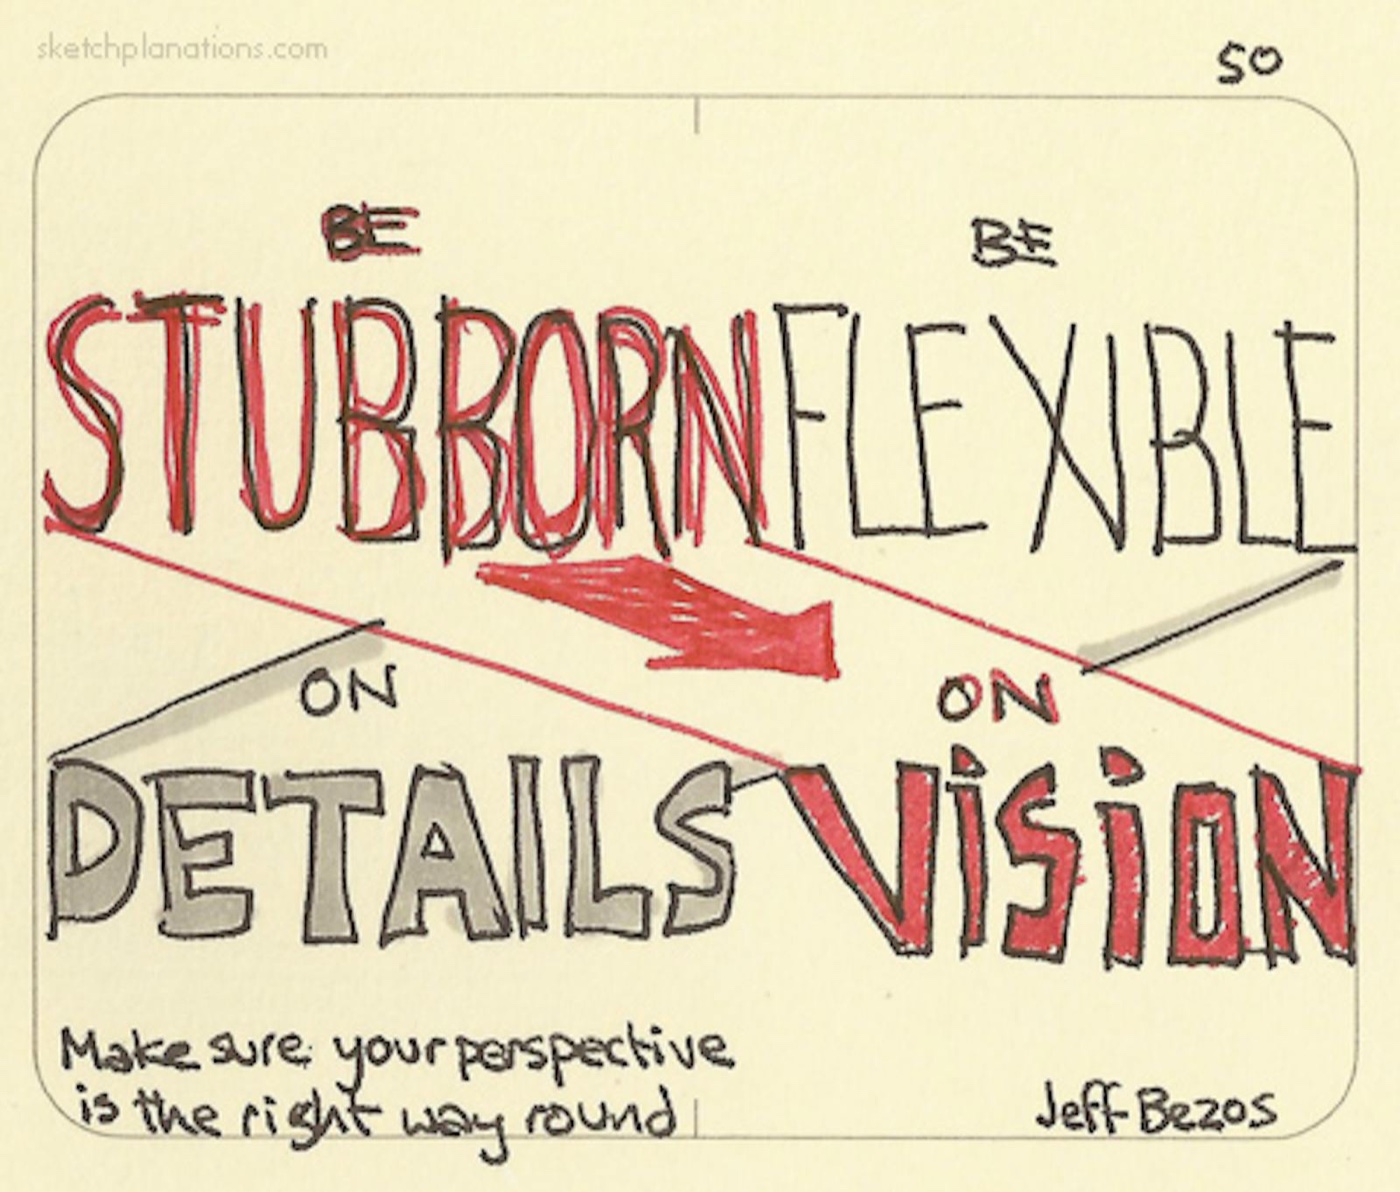 sketchplanations.com
50
BE BE
STUBBORN FLEXIBLE
ON ON
DETAILS ViSiON
Make sure your perspective
is the right way round
Jeff Bezos